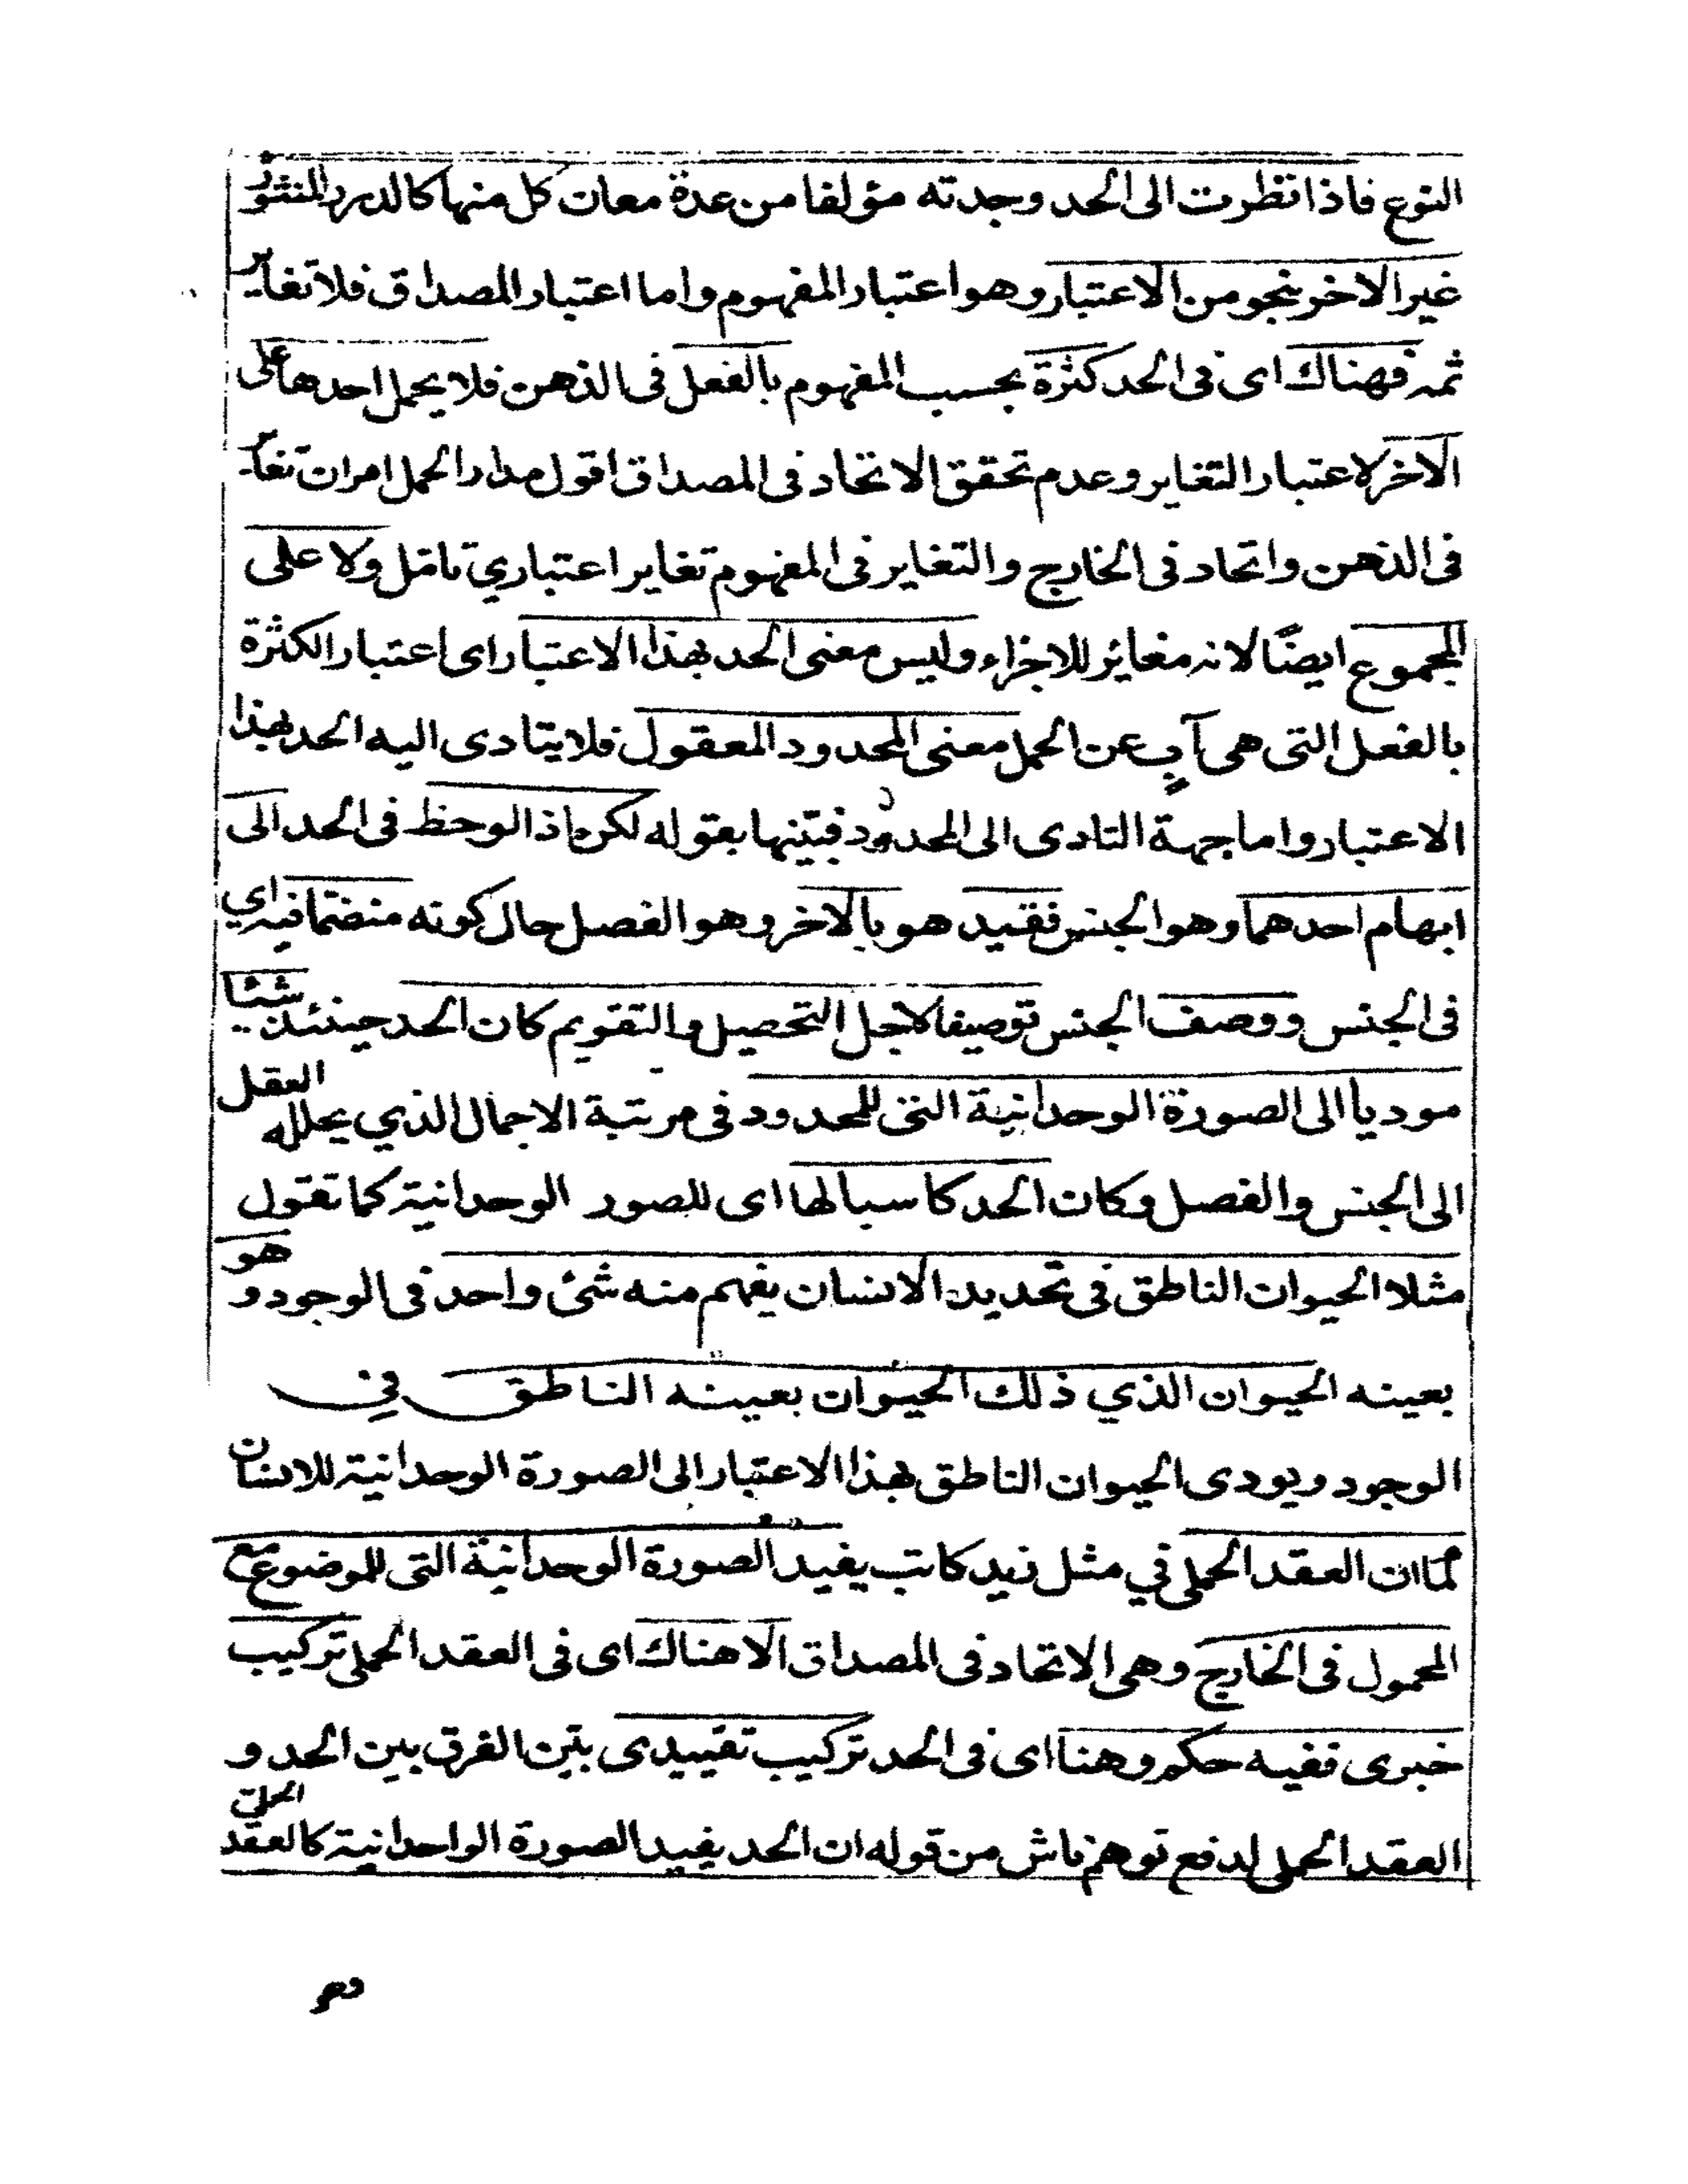 النوع فاذا نظرت الى الحد وجدته مؤلفا من عدة معان كل منها كالدرر المنثور
غير الاخر بنحو من الاعتبار وهو اعتبار المفهوم واما اعتبار المصداق فلا تغاير
ثمه فهناك اى فى الحد كثرة بحسب المفهوم بالفعل فى الذهن فلا يحمل احدها على
الاخر لاعتبار التغاير وعدم تحقق الاتحاد فى المصداق اقول مدار الحمل امران تغاير
فى الذهن واتحاد فى الخارج والتغاير فى المفهوم تغاير اعتباري تامل ولا على
المجموع ايضًا لانه مغائر للاجزاء وليس معنى الحد بهذا الاعتبار اى اعتبار الكثرة
بالفعل التى هى آبٍ عن الحمل معنى المحدود المعقول فلا يتادى اليه الحد بهذا
الاعتبار واما جهة التادى الى المحدود فبيّنها بقوله لكن اذا لوحظ فى الحد الى
ابهام احدهما وهو الجنس فقيد هو بالاخر وهو الفصل حال كونه منضما فيه اي
فى الجنس ووصف الجنس توصيفا لاجل التحصيل والتقويم كان الحد حينئذ شئا
موديا الى الصورة الوحدانية التى للمحدود فى مرتبة الاجمال الذي يحلله العقل
الى الجنس والفصل وكان الحد كاسبا لها اى للصور الوحدانية كما تقول
مثلا الحيوان الناطق فى تحديد الانسان يفهم منه شئ واحد فى الوجود و هو
بعينه الحيوان الذي ذلك الحيوان بعينه الناطق في
الوجود ويودى الحيوان الناطق بهذا الاعتبار الى الصورة الوحدانية للانسان
كما ان العقد الحملى في مثل زيد كاتب يفيد الصورة الوحدانية التى للموضوع مع
المحمول فى الخارج وهى الاتحاد فى المصداق الا هناك اى فى العقد الحملى تركيب
خبرى ففيه حكم وهنا اى فى الحد تركيب تقييدى بيّن الفرق بين الحد و
العقد الحملى لدفع توهم ناش من قوله ان الحد يفيد الصورة الواحدانية كالعقد الحملي